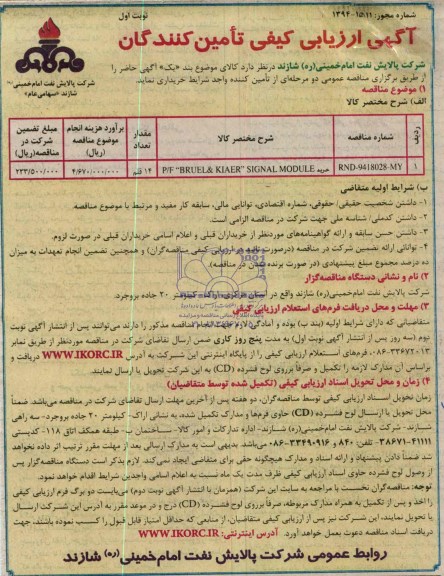 شماره مجوز: ۱۵۱۱-۱۳۹۴
نوبت اول
آگهی ارزیابی کیفی تأمین‌کنندگان
شرکت پالایش نفت امام‌خمینی(ره)
شازند «سهامی‌عام»
شرکت پالایش نفت امام‌خمینی(ره) شازند درنظر دارد کالای موضوع بند «یک» آگهی حاضر را
از طریق برگزاری مناقصه عمومی دو مرحله‌ای از تأمین کننده واجد شرایط خریداری نماید.
۱) موضوع مناقصه
الف) شرح مختصر کالا
ردیف شماره مناقصه شرح مختصر کالا مقدار تعداد برآورد هزینه انجام موضوع مناقصه (ریال) مبلغ تضمین شرکت در مناقصه(ریال)
۱ RND-9418028-MY خرید P/F "BRUEL& KIAER" SIGNAL MODULE ۱۴ قلم ۴/۶۷۰/۰۰۰/۰۰۰ ۲۳۳/۵۰۰/۰۰۰
ب) شرایط اولیه متقاضی
۱- داشتن شخصیت حقیقی/ حقوقی، شماره اقتصادی، توانایی مالی، سابقه کار مفید و مرتبط با موضوع مناقصه.
۲- داشتن کدملی/ شناسه ملی جهت شرکت در مناقصه الزامی است.
۳- داشتن حسن سابقه و ارائه گواهینامه‌های موردنظر از خریداران قبلی و اعلام اسامی خریداران قبلی در صورت لزوم.
۴- توانایی ارائه تضمین شرکت در مناقصه (درصورت تائید در ارزیابی کیفی مناقصه‌گران) و همچنین تضمین انجام تعهدات به میزان
ده درصد مجموع مبلغ پیشنهادی (در صورت برنده شدن در مناقصه).
۲) نام و نشانی دستگاه مناقصه‌گزار
شرکت پالایش نفت امام‌خمینی(ره) شازند واقع در استان مرکزی، اراک- کیلومتر ۲۰ جاده بروجرد.
۳) مهلت و محل دریافت فرم‌های استعلام ارزیابی کیفی
متقاضیانی که دارای شرایط اولیه (بند ب) بوده و آمادگی لازم جهت انجام مناقصه مذکور را دارند می‌توانند پس از انتشار آگهی نوبت
دوم (سه روز پس از انتشار آگهی نوبت اول) به مدت پنج روز کاری ضمن ارسال تقاضای شرکت در مناقصه موردنظر از طریق نمابر
۳۳۶۷۲۰۱۳-۰۸۶، فرم‌های استعلام ارزیابی کیفی را از پایگاه اینترنتی این شرکت به آدرس WWW.IKORC.IR دریافت و
براساس آن مدارک لازمه را تکمیل و صرفاً برروی لوح فشرده (CD) به این شرکت تحویل یا ارسال نمایند.
۴) زمان و محل تحویل اسناد ارزیابی کیفی (تکمیل شده توسط متقاضیان)
زمان تحویل اسناد ارزیابی کیفی توسط مناقصه‌گران، دو هفته پس از آخرین مهلت ارسال تقاضای شرکت در مناقصه می‌باشد. ضمناً
محل تحویل یا ارسال لوح فشرده (CD) حاوی فرم‌ها و مدارک تکمیل شده، به نشانی اراک- کیلومتر ۲۰ جاده بروجرد- سه راهی
شازند- شرکت پالایش نفت امام‌خمینی(ره) شازند- اداره تدارکات و امور کالا- ساختمان ب- طبقه همکف اتاق ۱۱۸- کدپستی
۴۱۱۱۱-۳۸۶۷۱- تلفن: ۸۴۰ و ۳۳۴۹۰۹۱۶-۰۸۶ می‌باشد. بدیهی است به مدارک ارسالی بعد از مهلت مقرر ترتیب اثر داده نخواهد
شد ضمناً دادن پیشنهاد و ارائه اسناد و مدارک هیچگونه حقی برای متقاضی ایجاد نمی‌کند. لازم بذکر است دستگاه مناقصه‌گزار پس
از وصول لوح فشرده حاوی اسناد ارزیابی کیفی ظرف مدت یک ماه نسبت به اعلام اسامی واجدین شرایط اقدام خواهد نمود.
توجه: مناقصه‌گران نخست با مراجعه به سایت این شرکت (همزمان با انتشار آگهی نوبت دوم) می‌بایست دو برگ فرم ارزیابی کیفی
را اخذ و پس از تکمیل به همراه مدارک مربوطه، صرفاً برروی لوح فشرده (CD) درج و در موعد مقرر به آدرس این شرکت ارسال
یا تحویل نمایند، این شرکت نیز پس از ارزیابی کیفی متقاضیان، از منابعی که حداقل امتیاز قابل قبول را کسب نموده باشند، جهت
دریافت اسناد مناقصه دعوت بعمل خواهد آورد. آدرس اینترنتی: WWW.IKORC.IR
روابط عمومی شرکت پالایش نفت امام‌خمینی(ره) شازند